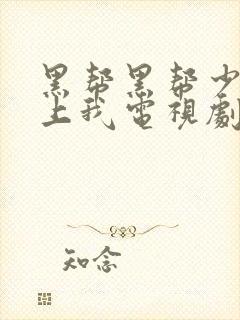 黑帮黑帮少
上我电視劇
知念